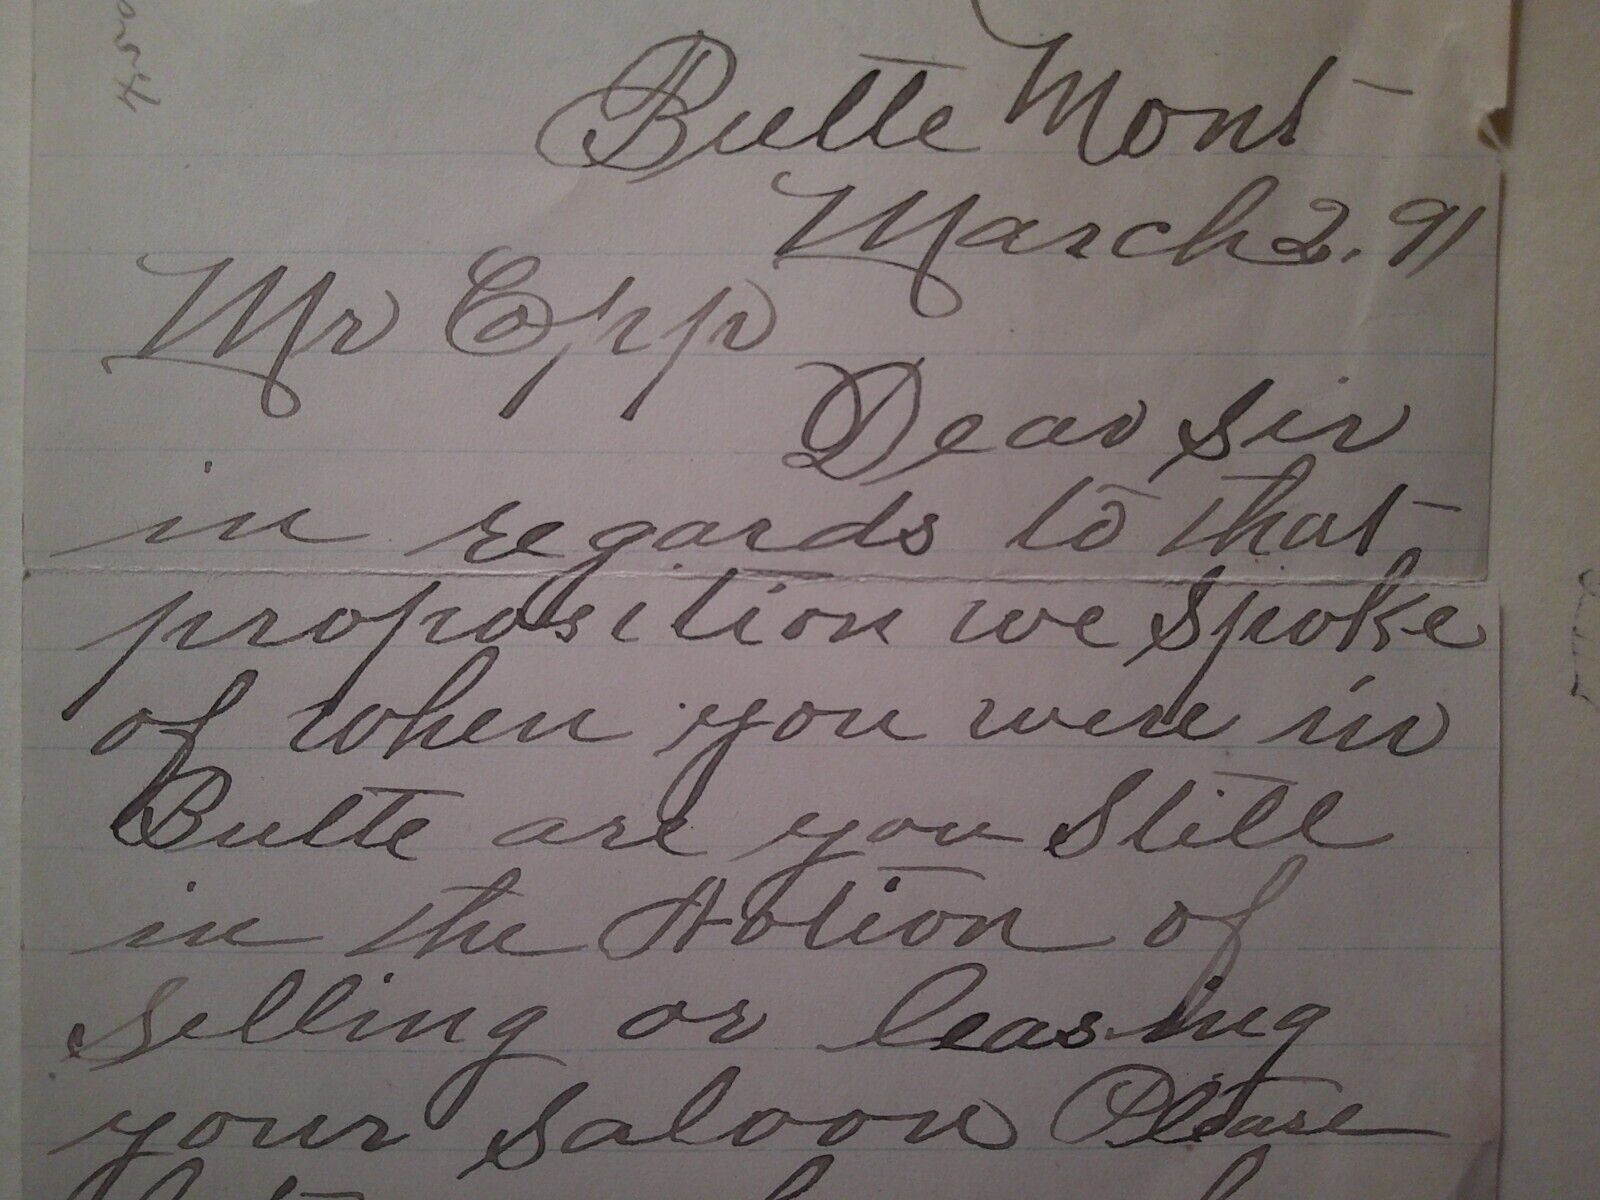 Butte Mont
March 2. 91
Mr Copp
Dear Sir
in regards to that
proposition we spoke
of when you were in
Butte are you still
in the Notion of
selling or leasing
your saloon Please